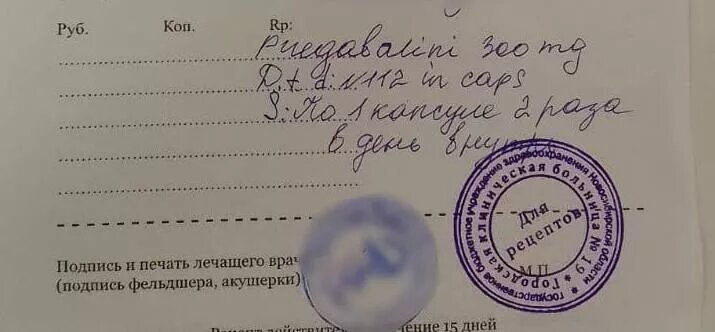 Руб. Коп. Rp:
Pregabalini 300 mg
D.t.d. N 112 in caps
S: По 1 капсуле 2 раза
в день внутрь
Государственное бюджетное учреждение здравоохранения Новосибирской области
Городская клиническая больница № 19
Для
рецептов
М.П.
Подпись и печать лечащего
(подпись фельдшера, акушерки)
15 дней